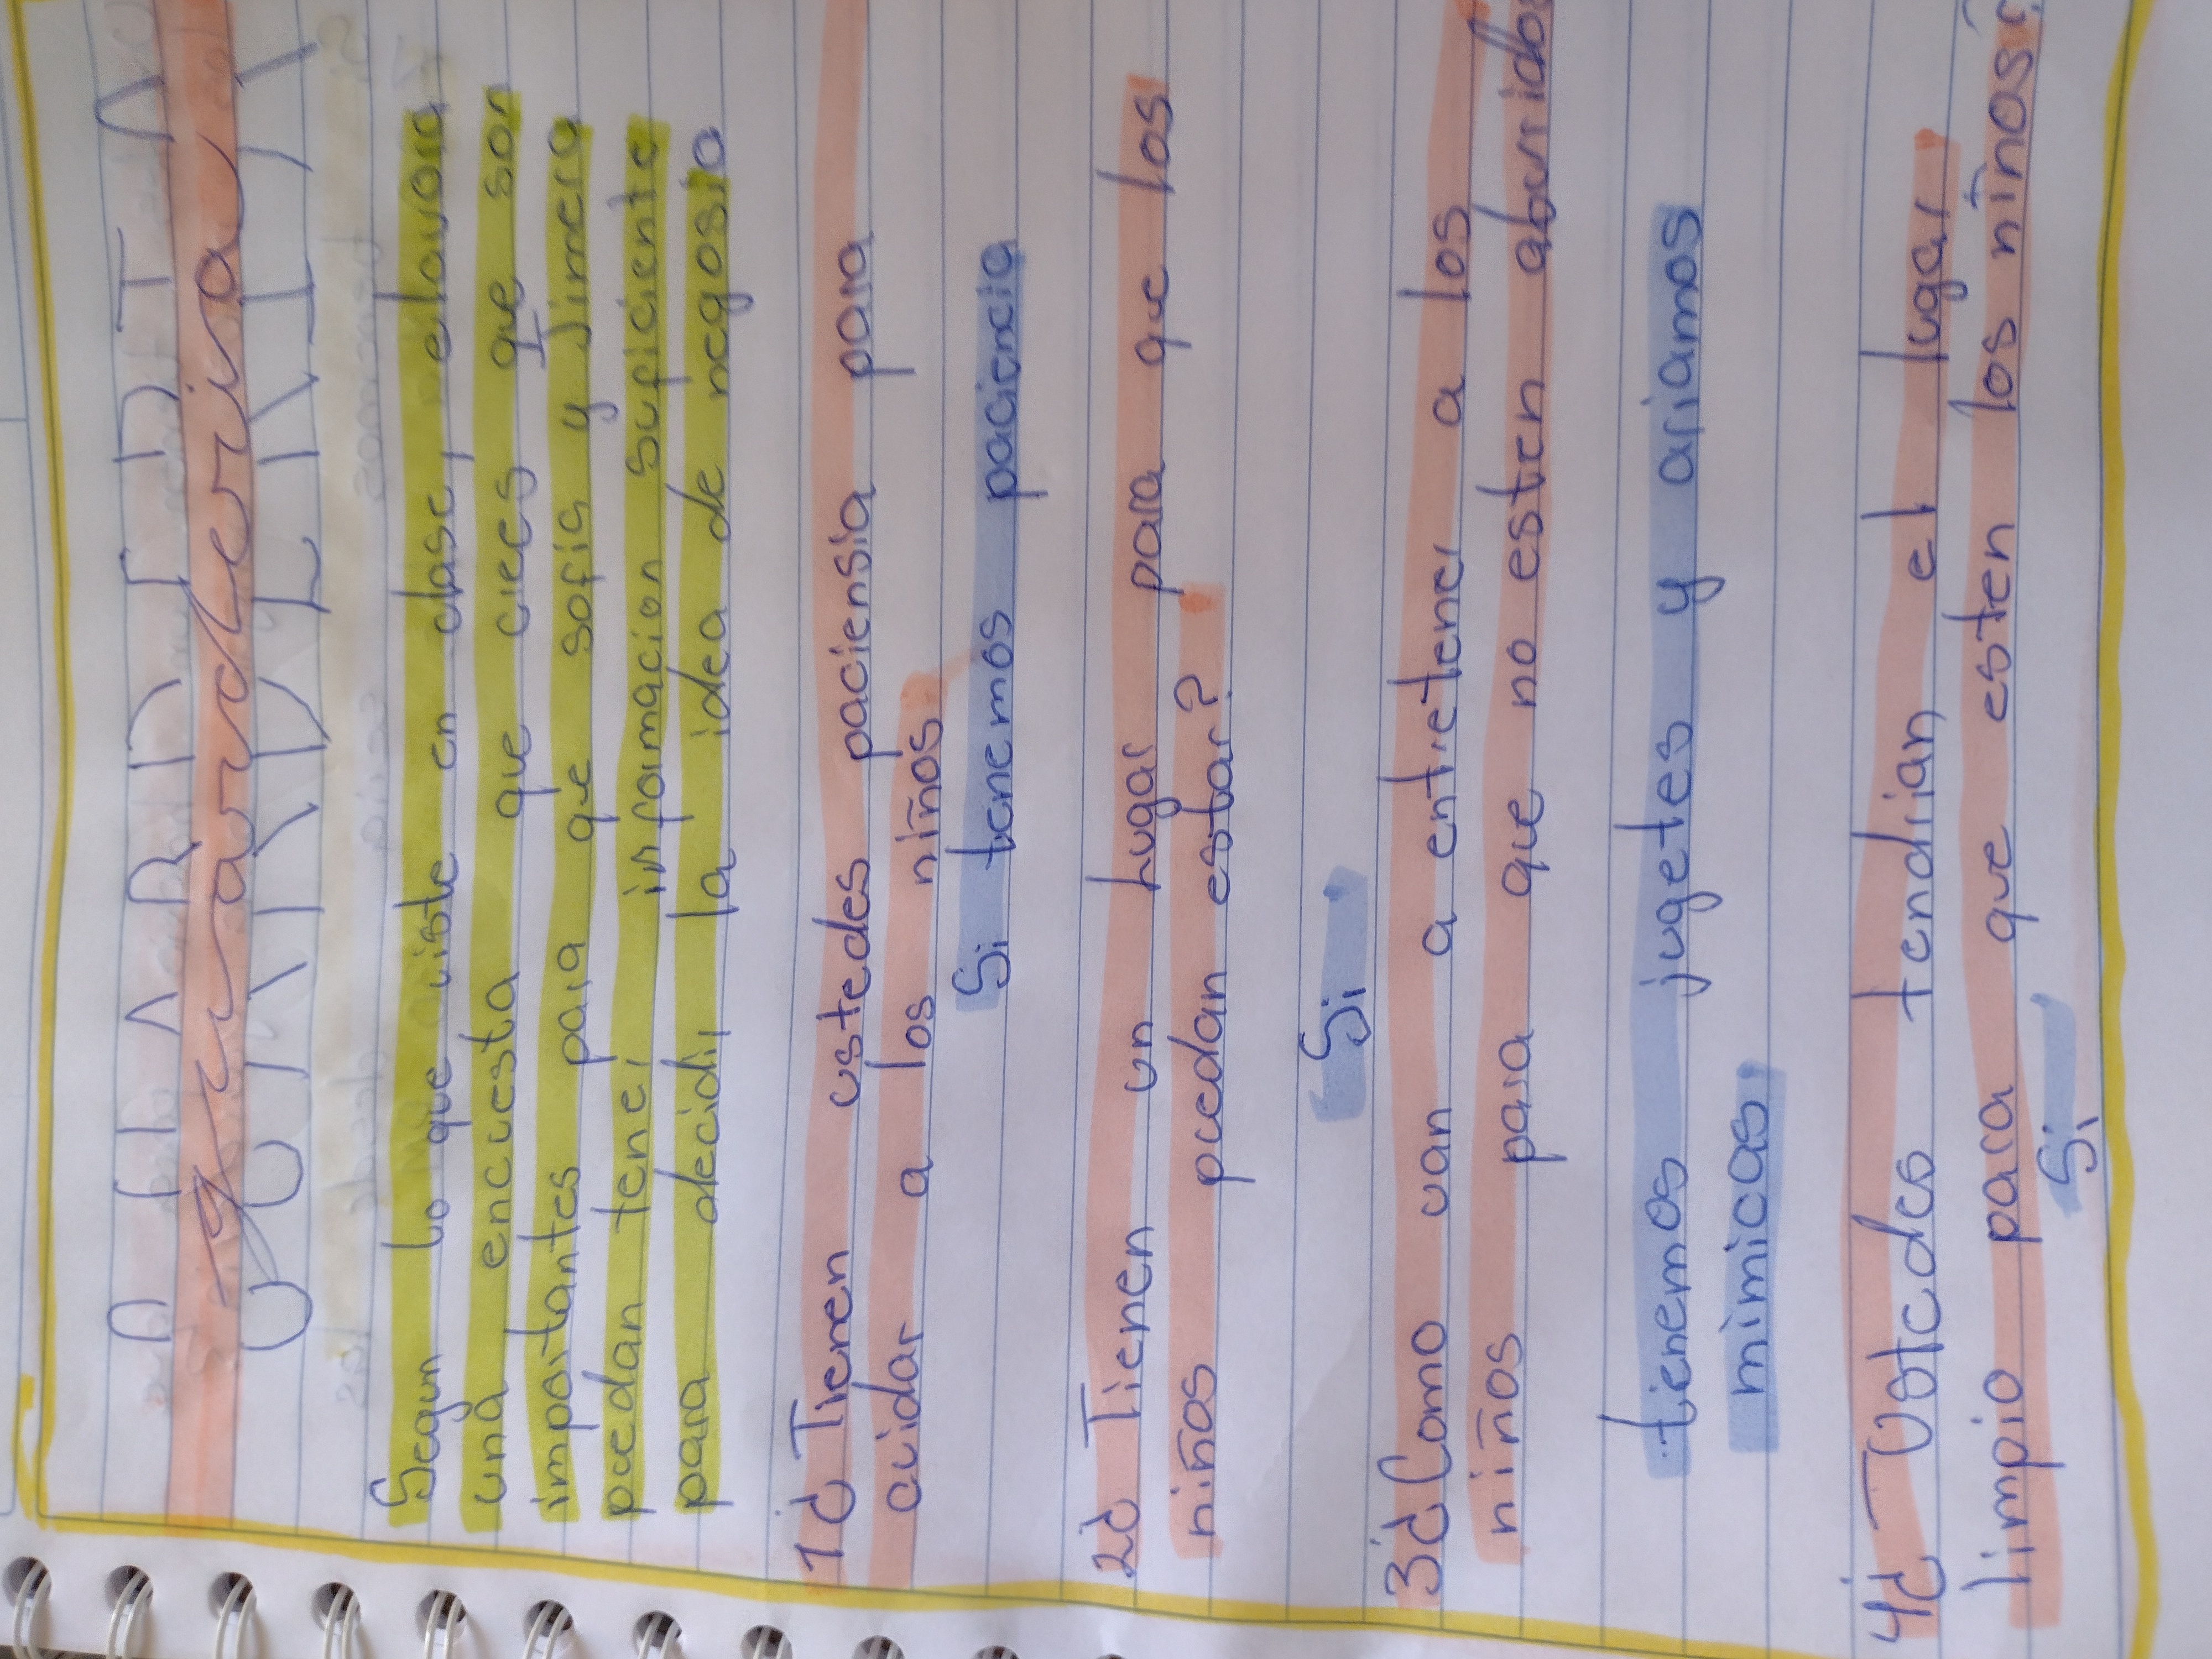 guarderia
Segun lo que viste en clase, elavora
una encuesta que crees que son
importantes para que sofia y Jimera
puedan tener informacion suficiente
para decidir la idea de negosio
1¿ Tienen ustedes paciensia para
cuidar a los niños
Si tenemos paciencia
2¿ Tienen un lugar para que los
niños puedan estar?
Si
3¿Como van a entretener a los
niños para que no esten aburridos
tienemos jugetes y ariamos
mimicas
4¿ Ustedes tendrian el lugar
limpio para que esten los niños?
Si